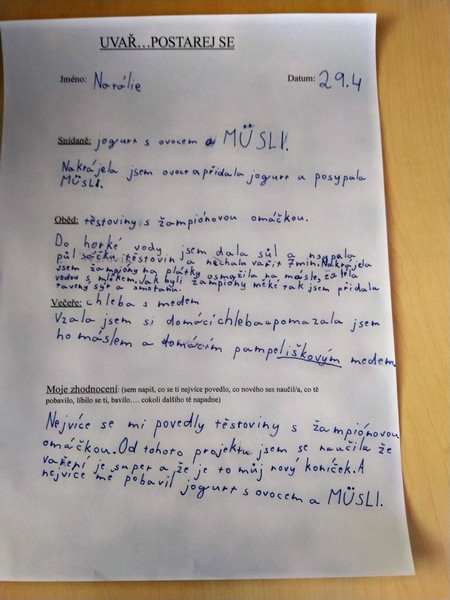 UVAŘ...POSTAREJ SE
Jméno: Natálie Datum: 29.4
Snídaně: jogurt s ovocem a MÜSLI.
Nakrájela jsem ovoce a přidala jogurt a posypala
MÜSLI.
Oběd: těstoviny s žampiónovou omáčkou.
Do horké vody jsem dala sůl a nasypala
půl sáčku těstovin a nechala vařit 7 min. Nakrájela
jsem žampióny na plátky osmažila na másle, zalila
vodou s mlékem. Jak byli žampióny měké tak jsem přidala
tavený sýr a smetanu.
Večeře: chleba s medem
Vzala jsem si domácí chleba a pomazala jsem
ho máslem a domácím pampeliškovým medem
Moje zhodnocení: (sem napiš, co se ti nejvíce povedlo, co nového ses naučil/a, co tě
pobavilo, líbilo se ti, bavilo.... cokoli dalšího tě napadne)
Nejvíce se mi povedly těstoviny s žampiónovou
omáčkou. Od tohoto projektu jsem se naučila že
vaření je super a že je to můj nový koníček. A
nejvíce mě pobavil jogurt s ovocem a MÜSLI.